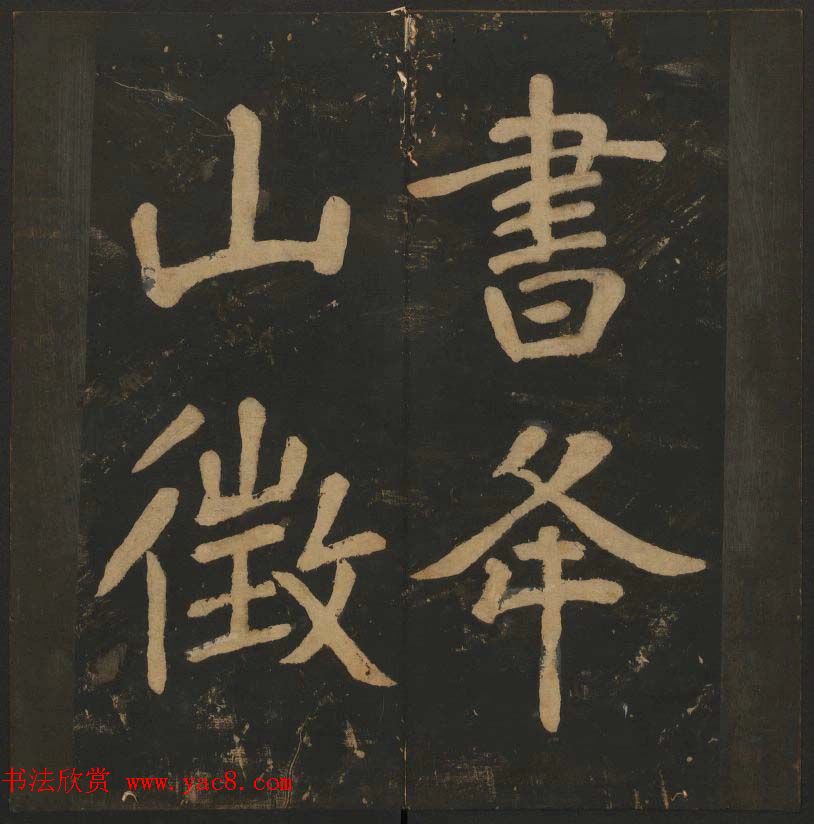 書夅
山徵
书法欣赏 www.yac8.com